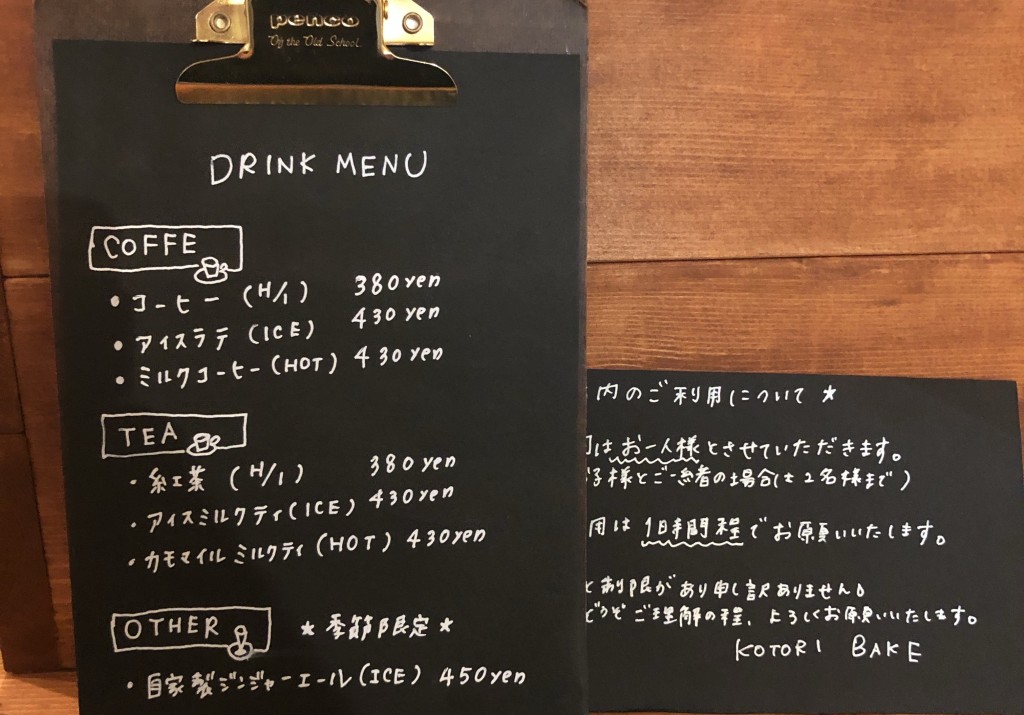 penco
"Off the Old School."
DRINK MENU
COFFE
・コーヒー (H/I) 380yen
・アイスラテ (ICE) 430yen
・ミルクコーヒー (HOT) 430yen
TEA
・紅茶 (H/I) 380yen
・アイスミルクティ (ICE) 430yen
・カモマイルミルクティ (HOT) 430yen
OTHER ★季節限定★
・自家製ジンジャーエール (ICE) 450yen
内のご利用について ★
はお一人様とさせていただきます。
子様とご一緒の場合は2名様まで)
用は1時間程でお願いいたします。
と制限があり申し訳ありません。
どうぞご理解の程、よろしくお願いいたします。
KOTORI BAKE